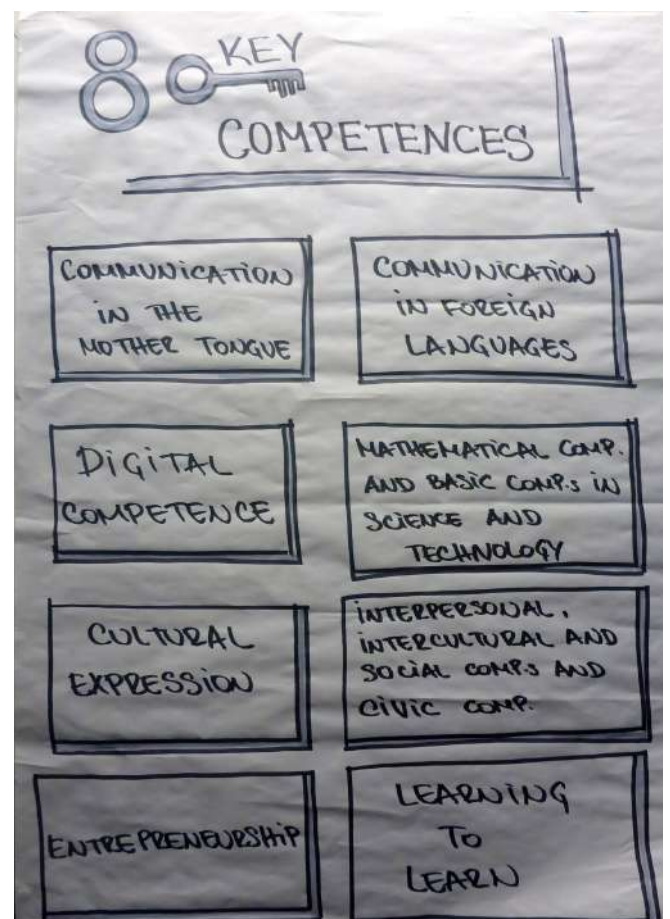 8 KEY
COMPETENCES
COMMUNICATION
IN THE
MOTHER TONGUE
COMMUNICATION
IN FOREIGN
LANGUAGES
DIGITAL
COMPETENCE
MATHEMATICAL COMP.
AND BASIC COMP.S IN
SCIENCE AND
TECHNOLOGY
CULTURAL
EXPRESSION
INTERPERSONAL,
INTERCULTURAL AND
SOCIAL COMP.S AND
CIVIC COMP.
ENTREPRENEURSHIP
LEARNING
TO
LEARN